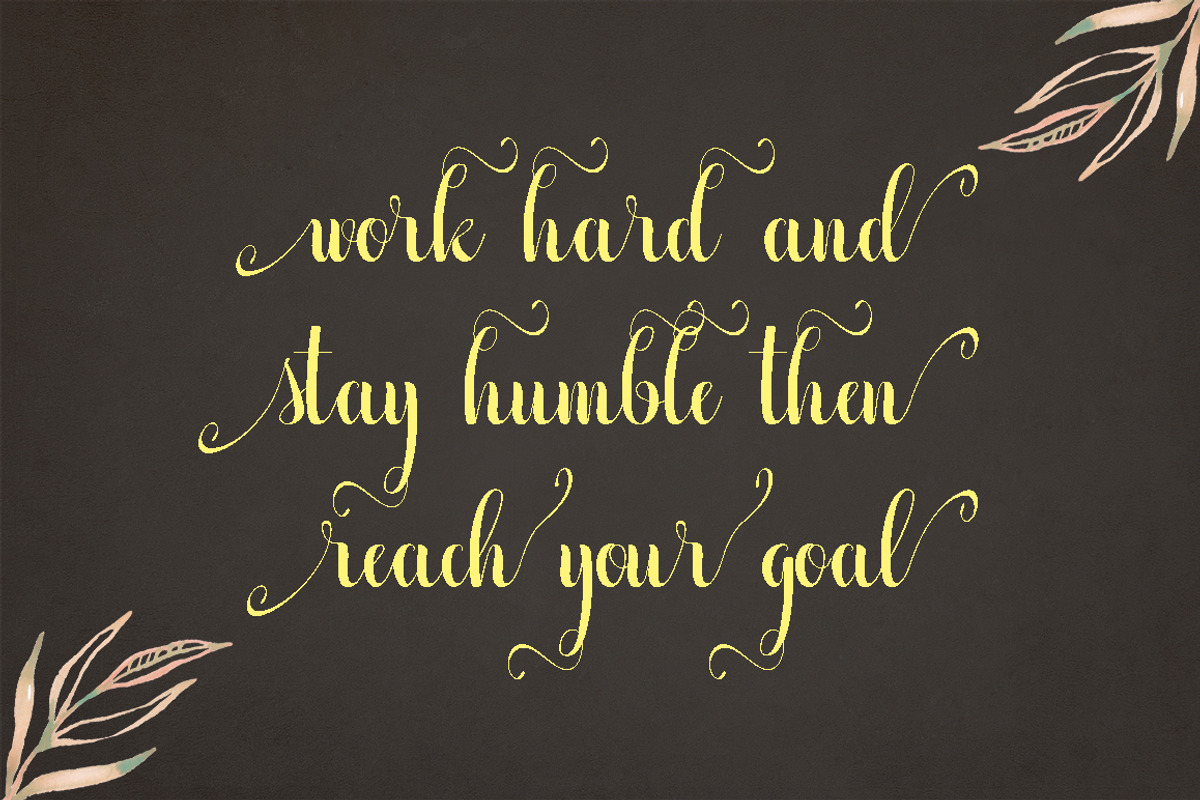 work hard and
stay humble then
reach your goal